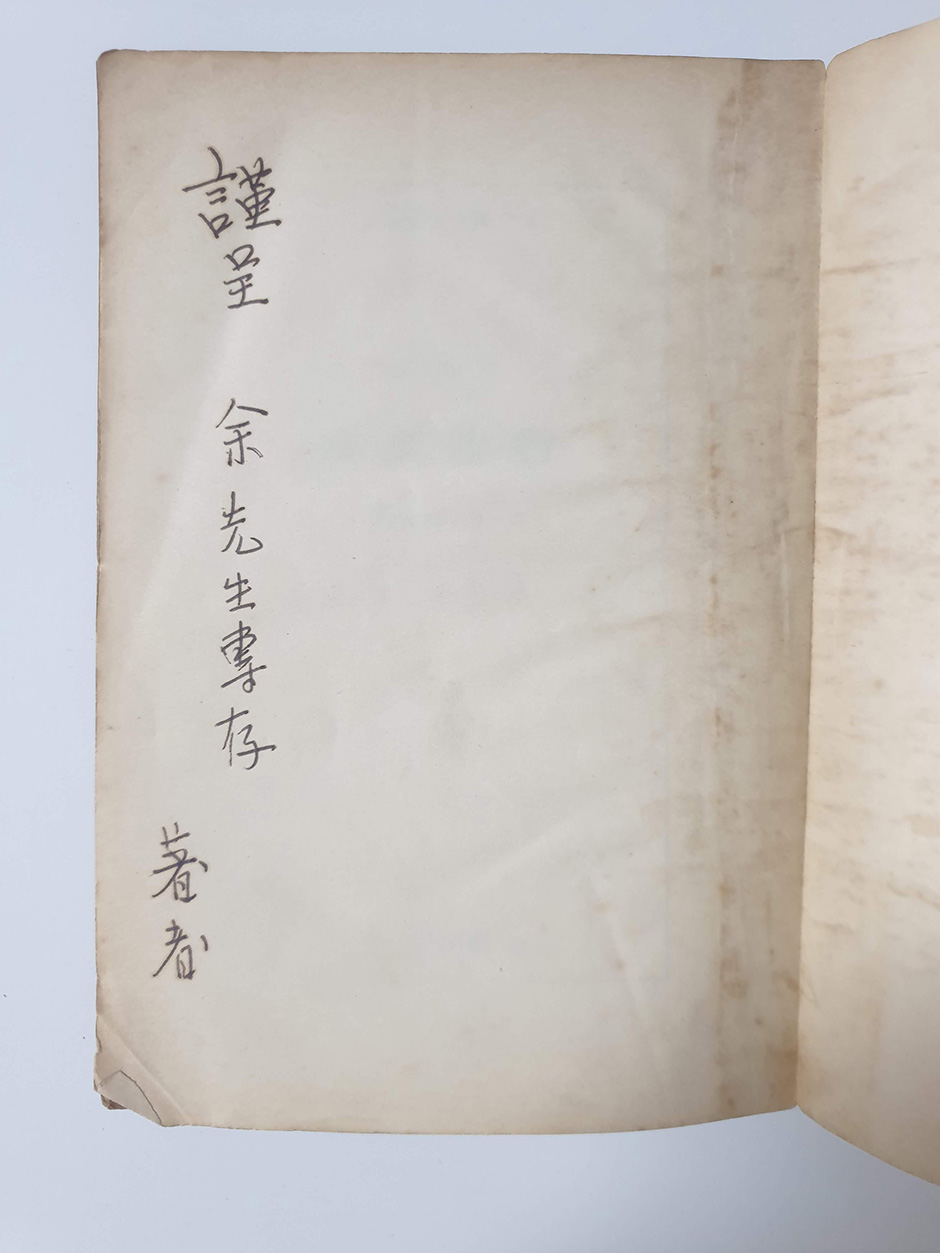 謹呈　余先生專存
著者